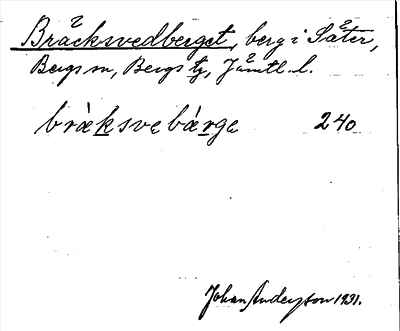 Bräcksvedberget, berg i Säter,
Bergs sn, Bergs tg, Jämtl. l.
bräksvebärge 240
Johan Anderson 1931.